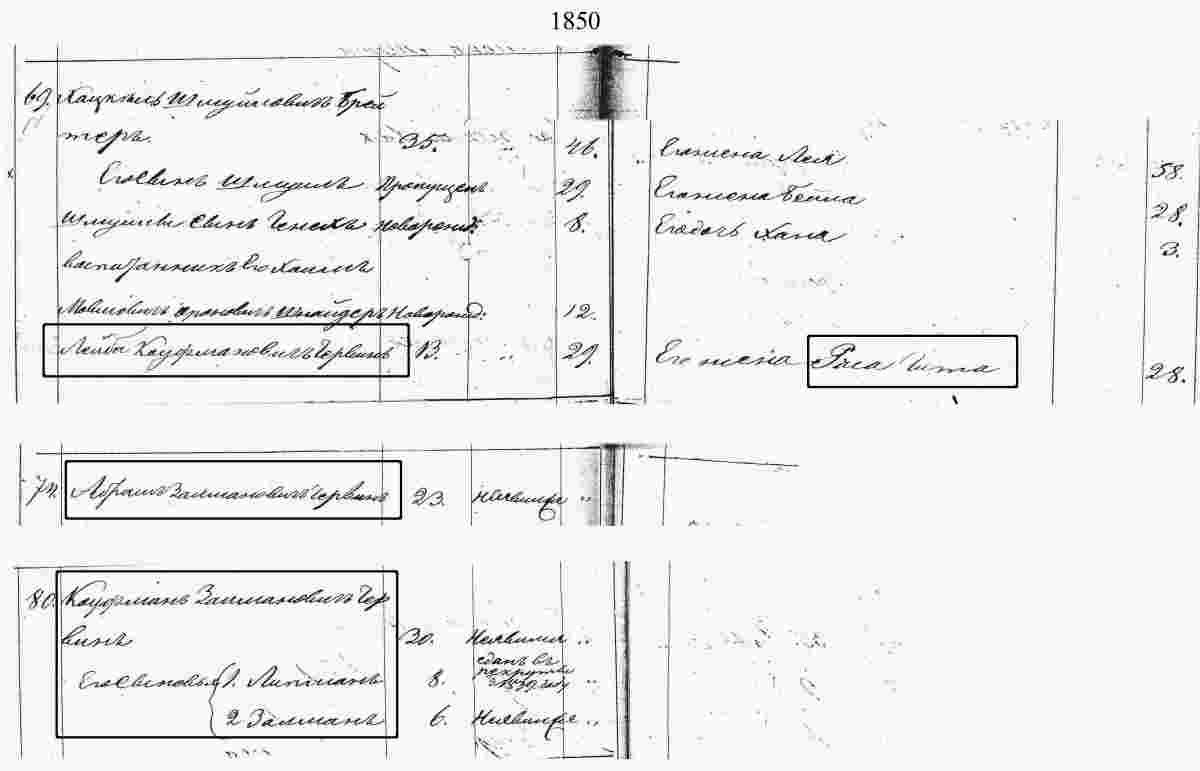 1850
69. Хацкель Шмуйловичъ Брей
теръ. 35. " 46. Его жена Лея 58.
Его сынъ Шмуилъ Пропущенъ 29. Его жена Бейла 28.
Шмуила сынъ Генехъ Новорожд: 8. Его дочь Хана 3.
воспитанникъ его Хаимъ
Мовшовичъ Ароновичъ Шнайдеръ Новорожд: 12.
Лейба Кауфмановичъ Червинъ 13. " 29. Его жена Раса Гита 28.
Абрамъ Залмановичъ Червинъ 23. Неявился "
80. Кауфманъ Залмановичъ Чер
винъ 30. Неявился "
Его сыновья 1. Липманъ 8. сданъ въ рекруты "
2 Залманъ 6. Неявился "